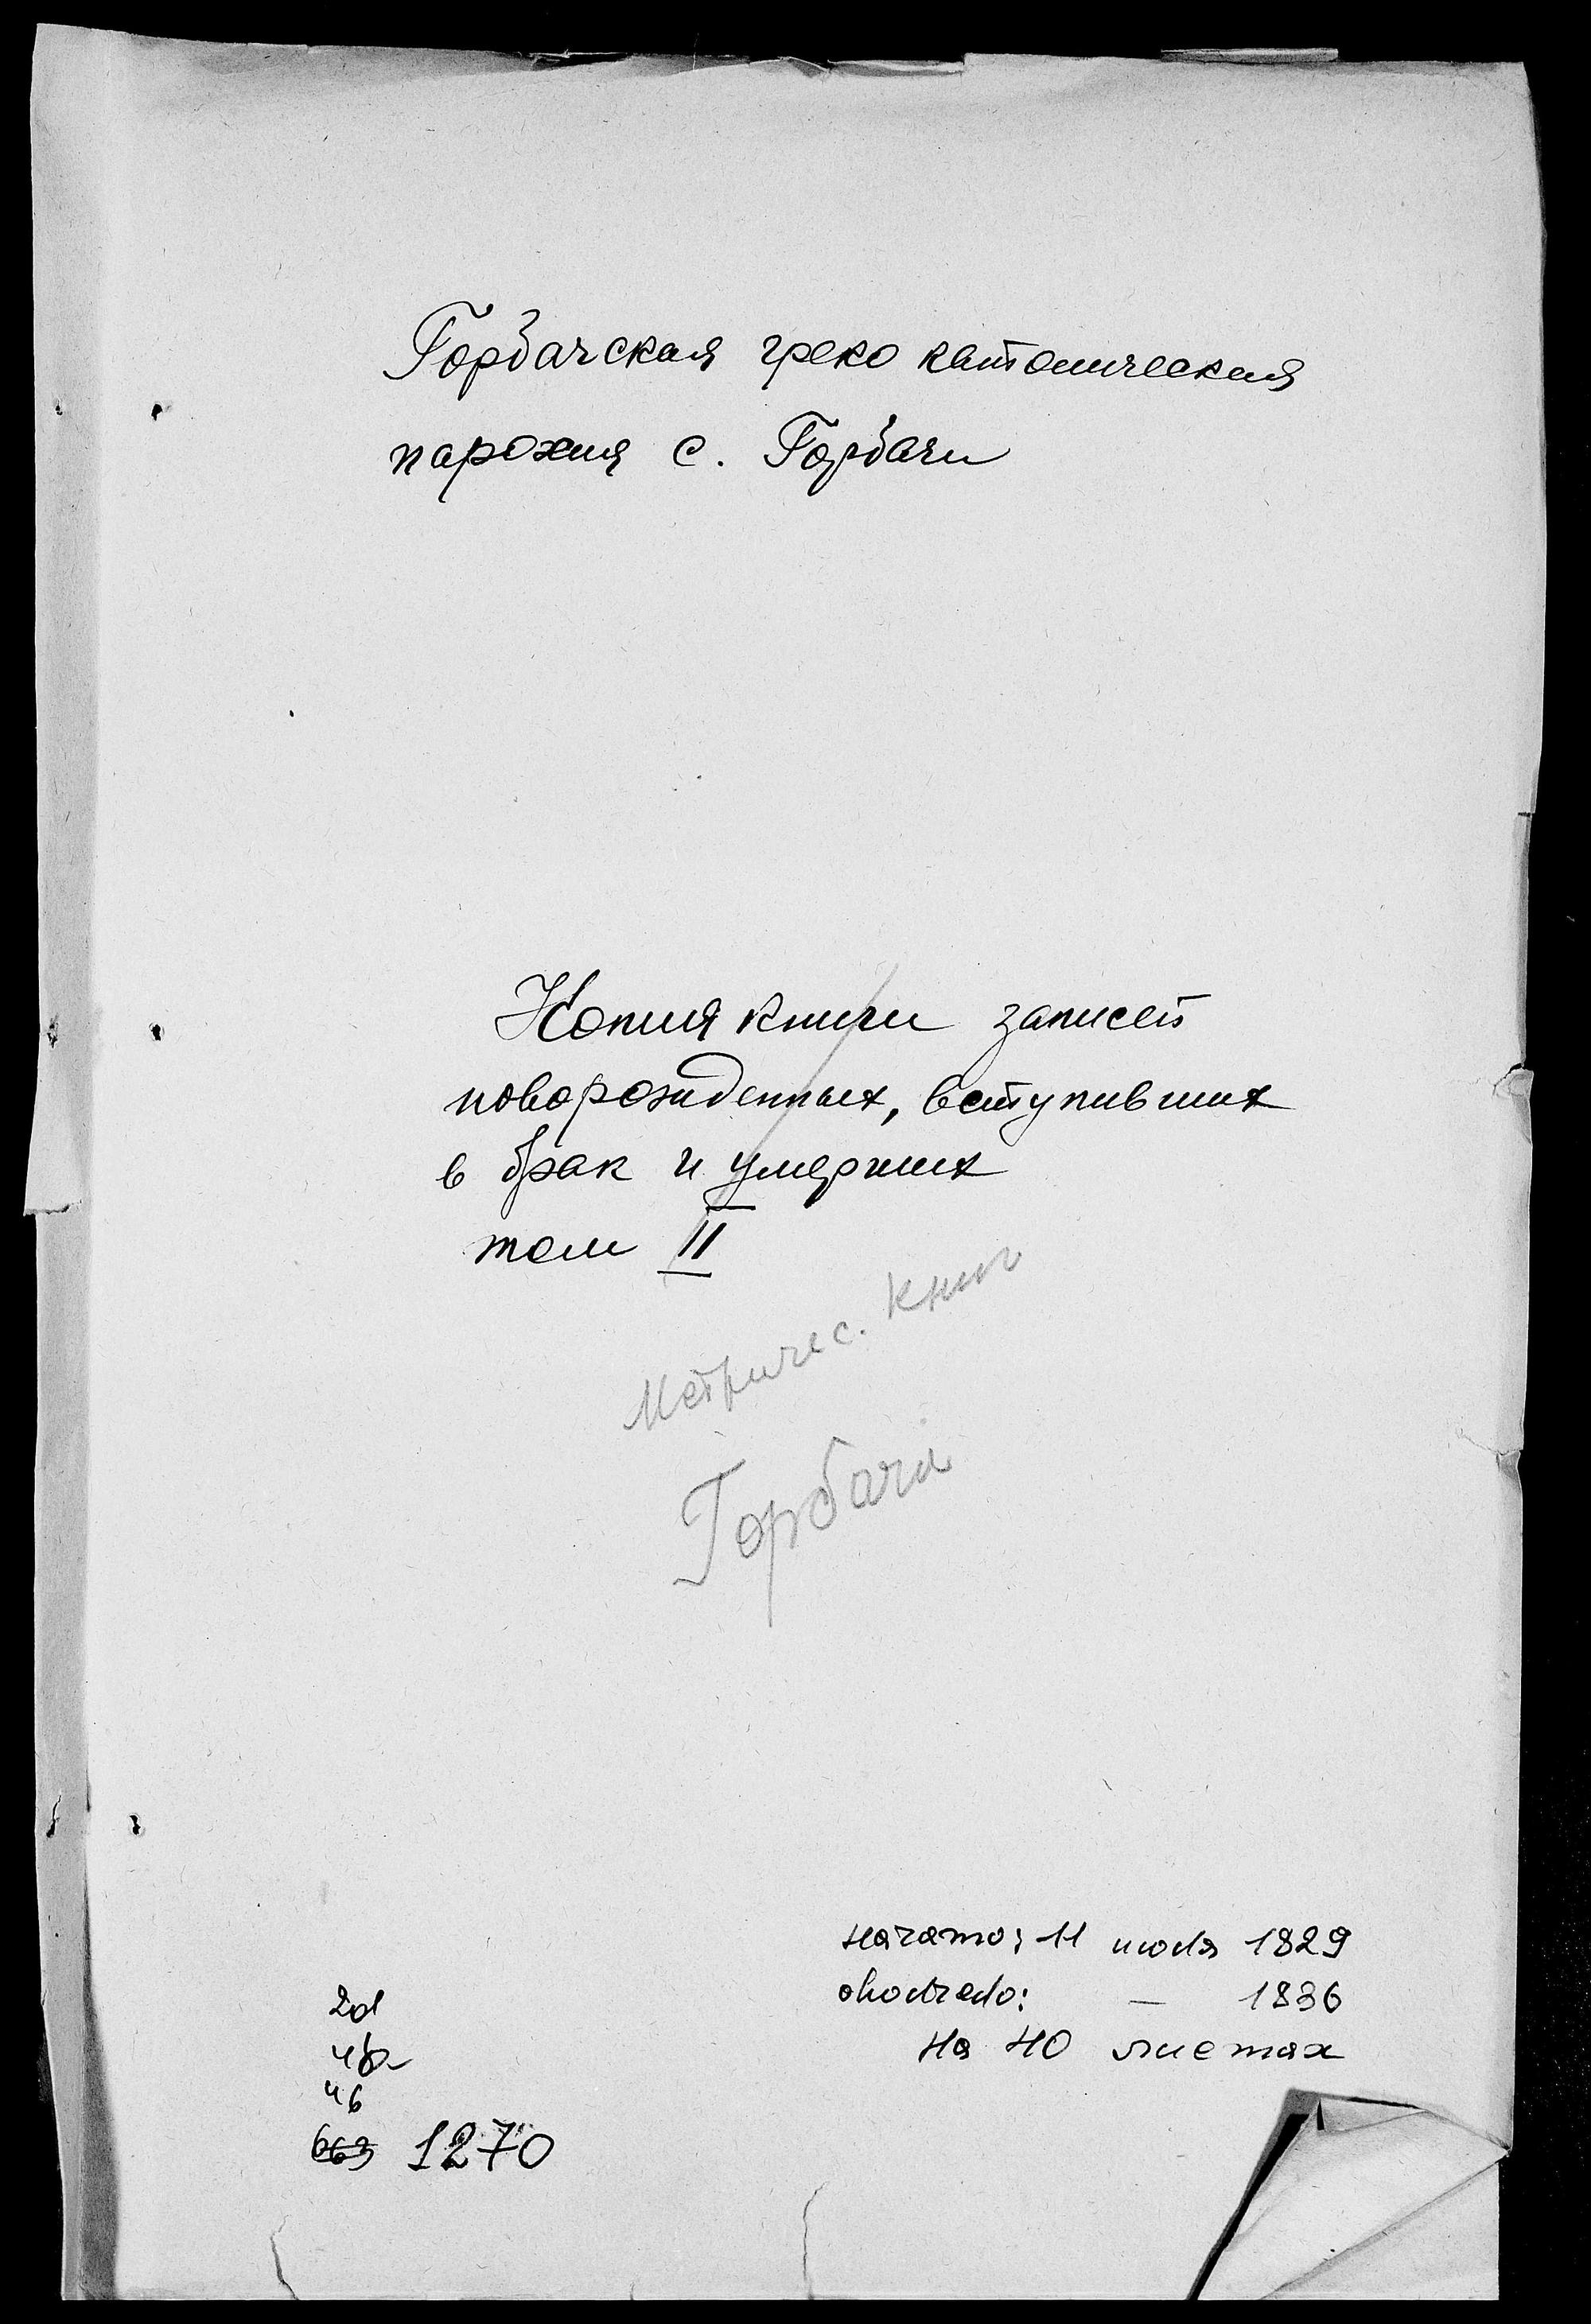 Горбачская греко католическая
парохия с. Горбачи
Копия книги записей
новорожденных, вступивших
в брак и умерших
том II
Метричес. книг
Горбачи
начато: 11 июля 1829
окончено: — 1836
на 40 листах
201
4б
663 1270